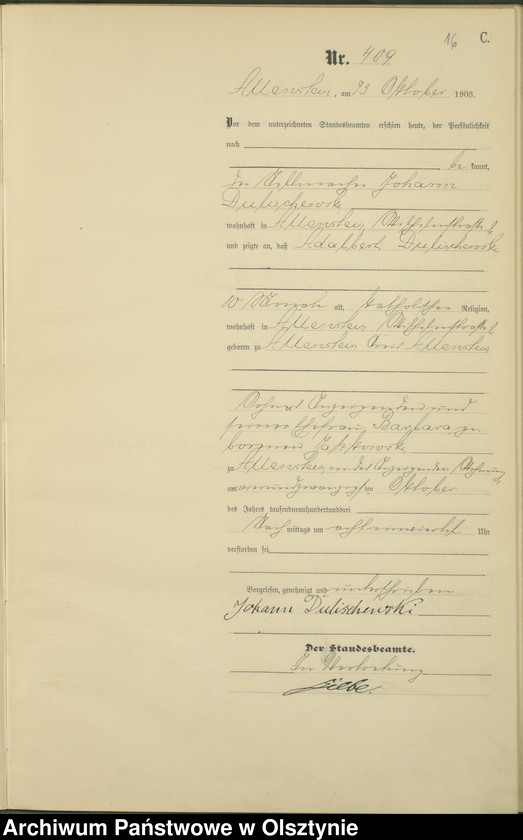 16 C.
Nr. 409
Allenstein, am 23 Oktober 1903.
Vor dem unterzeichneten Standesbeamten erschien heute, der Persönlichkeit
nach
be kannt,
der Johann
Dulischewski
wohnhaft in Allenstein, Wilhelmstraße
und zeigte an, daß Adalbert Dulischewski
10 Monate alt, katholischer Religion,
wohnhaft in Allenstein Wilhelmstraße
geboren zu Allenstein Kreis Allenstein
Sohn des Anzeigenden und
seiner Ehefrau Barbara ge
borenen
zu Allenstein in des Anzeigenden Wohnung
am Oktober
des Jahres tausendneunhundertunddrei
Nach mittags um acht einviertel Uhr
verstorben sei.
Vorgelesen, genehmigt und unterschrieben
Johann Dulischewski
Der Standesbeamte.
In Vertretung
Archiwum Państwowe w Olsztynie